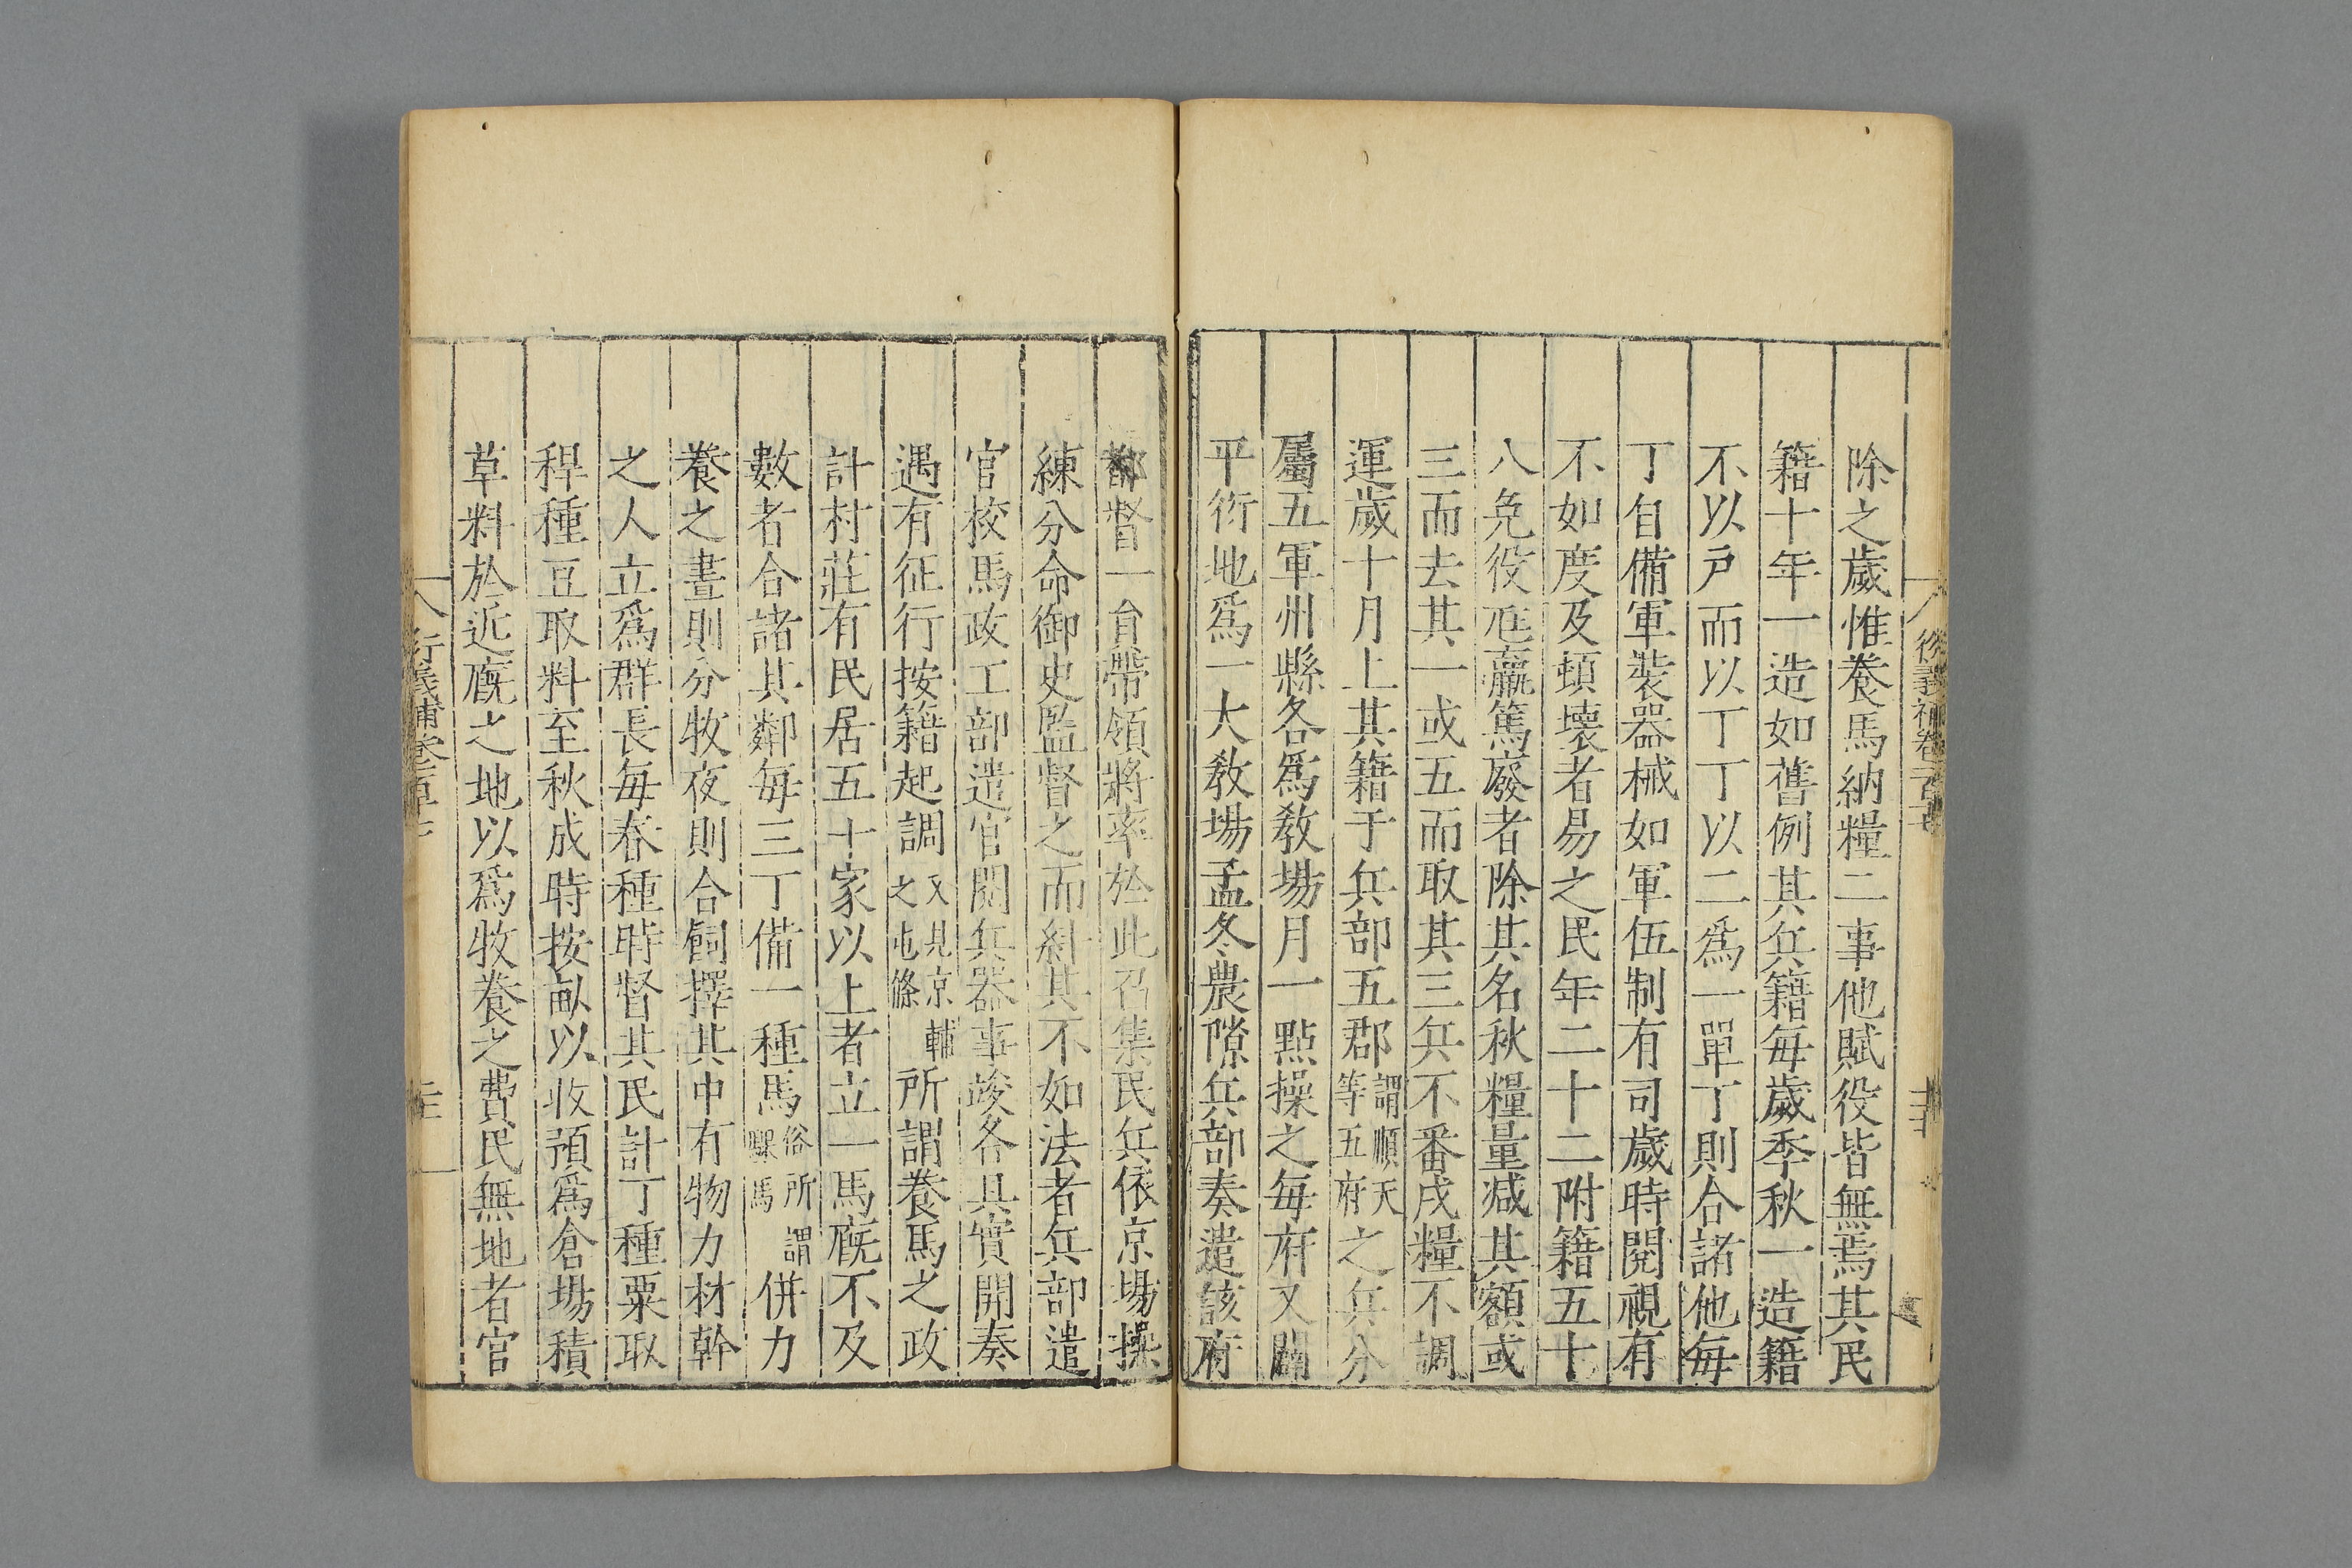 除之歲惟養馬納糧二事他賦役皆無焉其民
籍十年一造如舊例其兵籍每歲季秋一造籍
不以戶而以丁丁以二爲一單丁則合諸他每
丁自備軍裝器械如軍伍制有司歲時閱視有
不如度及頓壞者易之民年二十二附籍五十
八免役尫羸篤廢者除其名秋糧量减其額或
三而去其一或五而取其三兵不番戍糧不調
運歲十月上其籍于兵部五郡謂順天等五府之兵分
屬五軍州縣各爲教場月一點操之每府又闢
平衍地爲一大教場孟冬農隙兵部奏遣該府
都督一員帶領將率於此召集民兵依京場操
練分命御史監督之而糾其不如法者兵部遣
官校馬政工部遣官閱兵器事竣各具實開奏
遇有征行按籍起調又見京輔之屯條所謂養馬之政
計村莊有民居五十家以上者立一馬廐不及
數者合諸其鄰每三丁備一種馬俗所謂騍馬併力
養之晝則分牧夜則合飼擇其中有物力材幹
之人立爲群長每春種時督其民計丁種粟取
稈種豆取料至秋成時按畝以收預爲倉場積
草料於近廐之地以爲牧養之費民無地者官